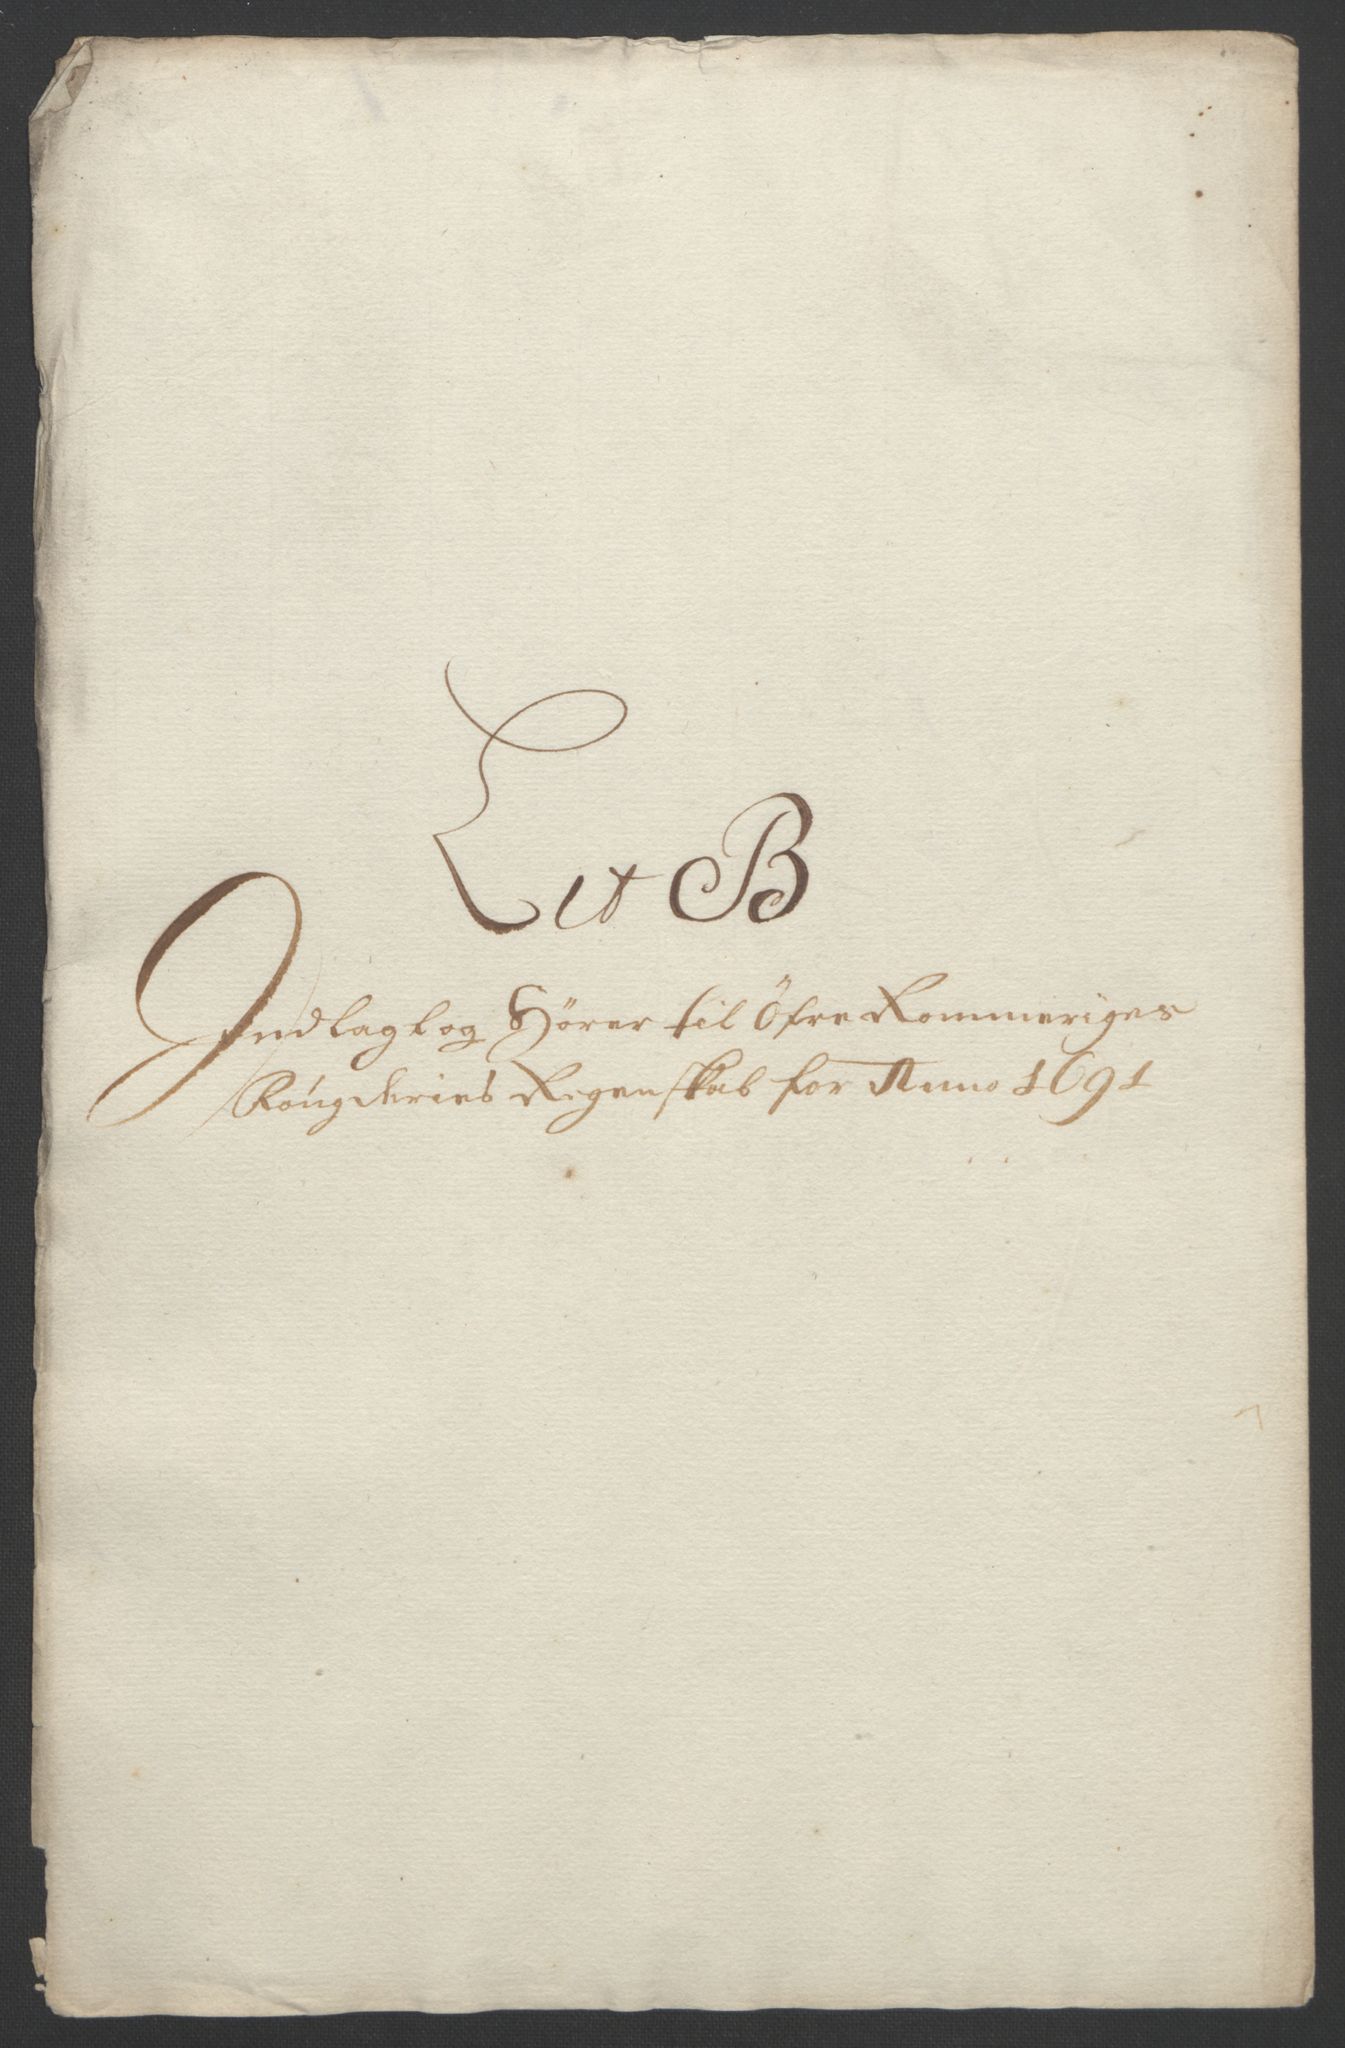 Lit B
Indlag og Hörer til Öfre Rommeriges
Fougderies Regenskab for Anno 1691